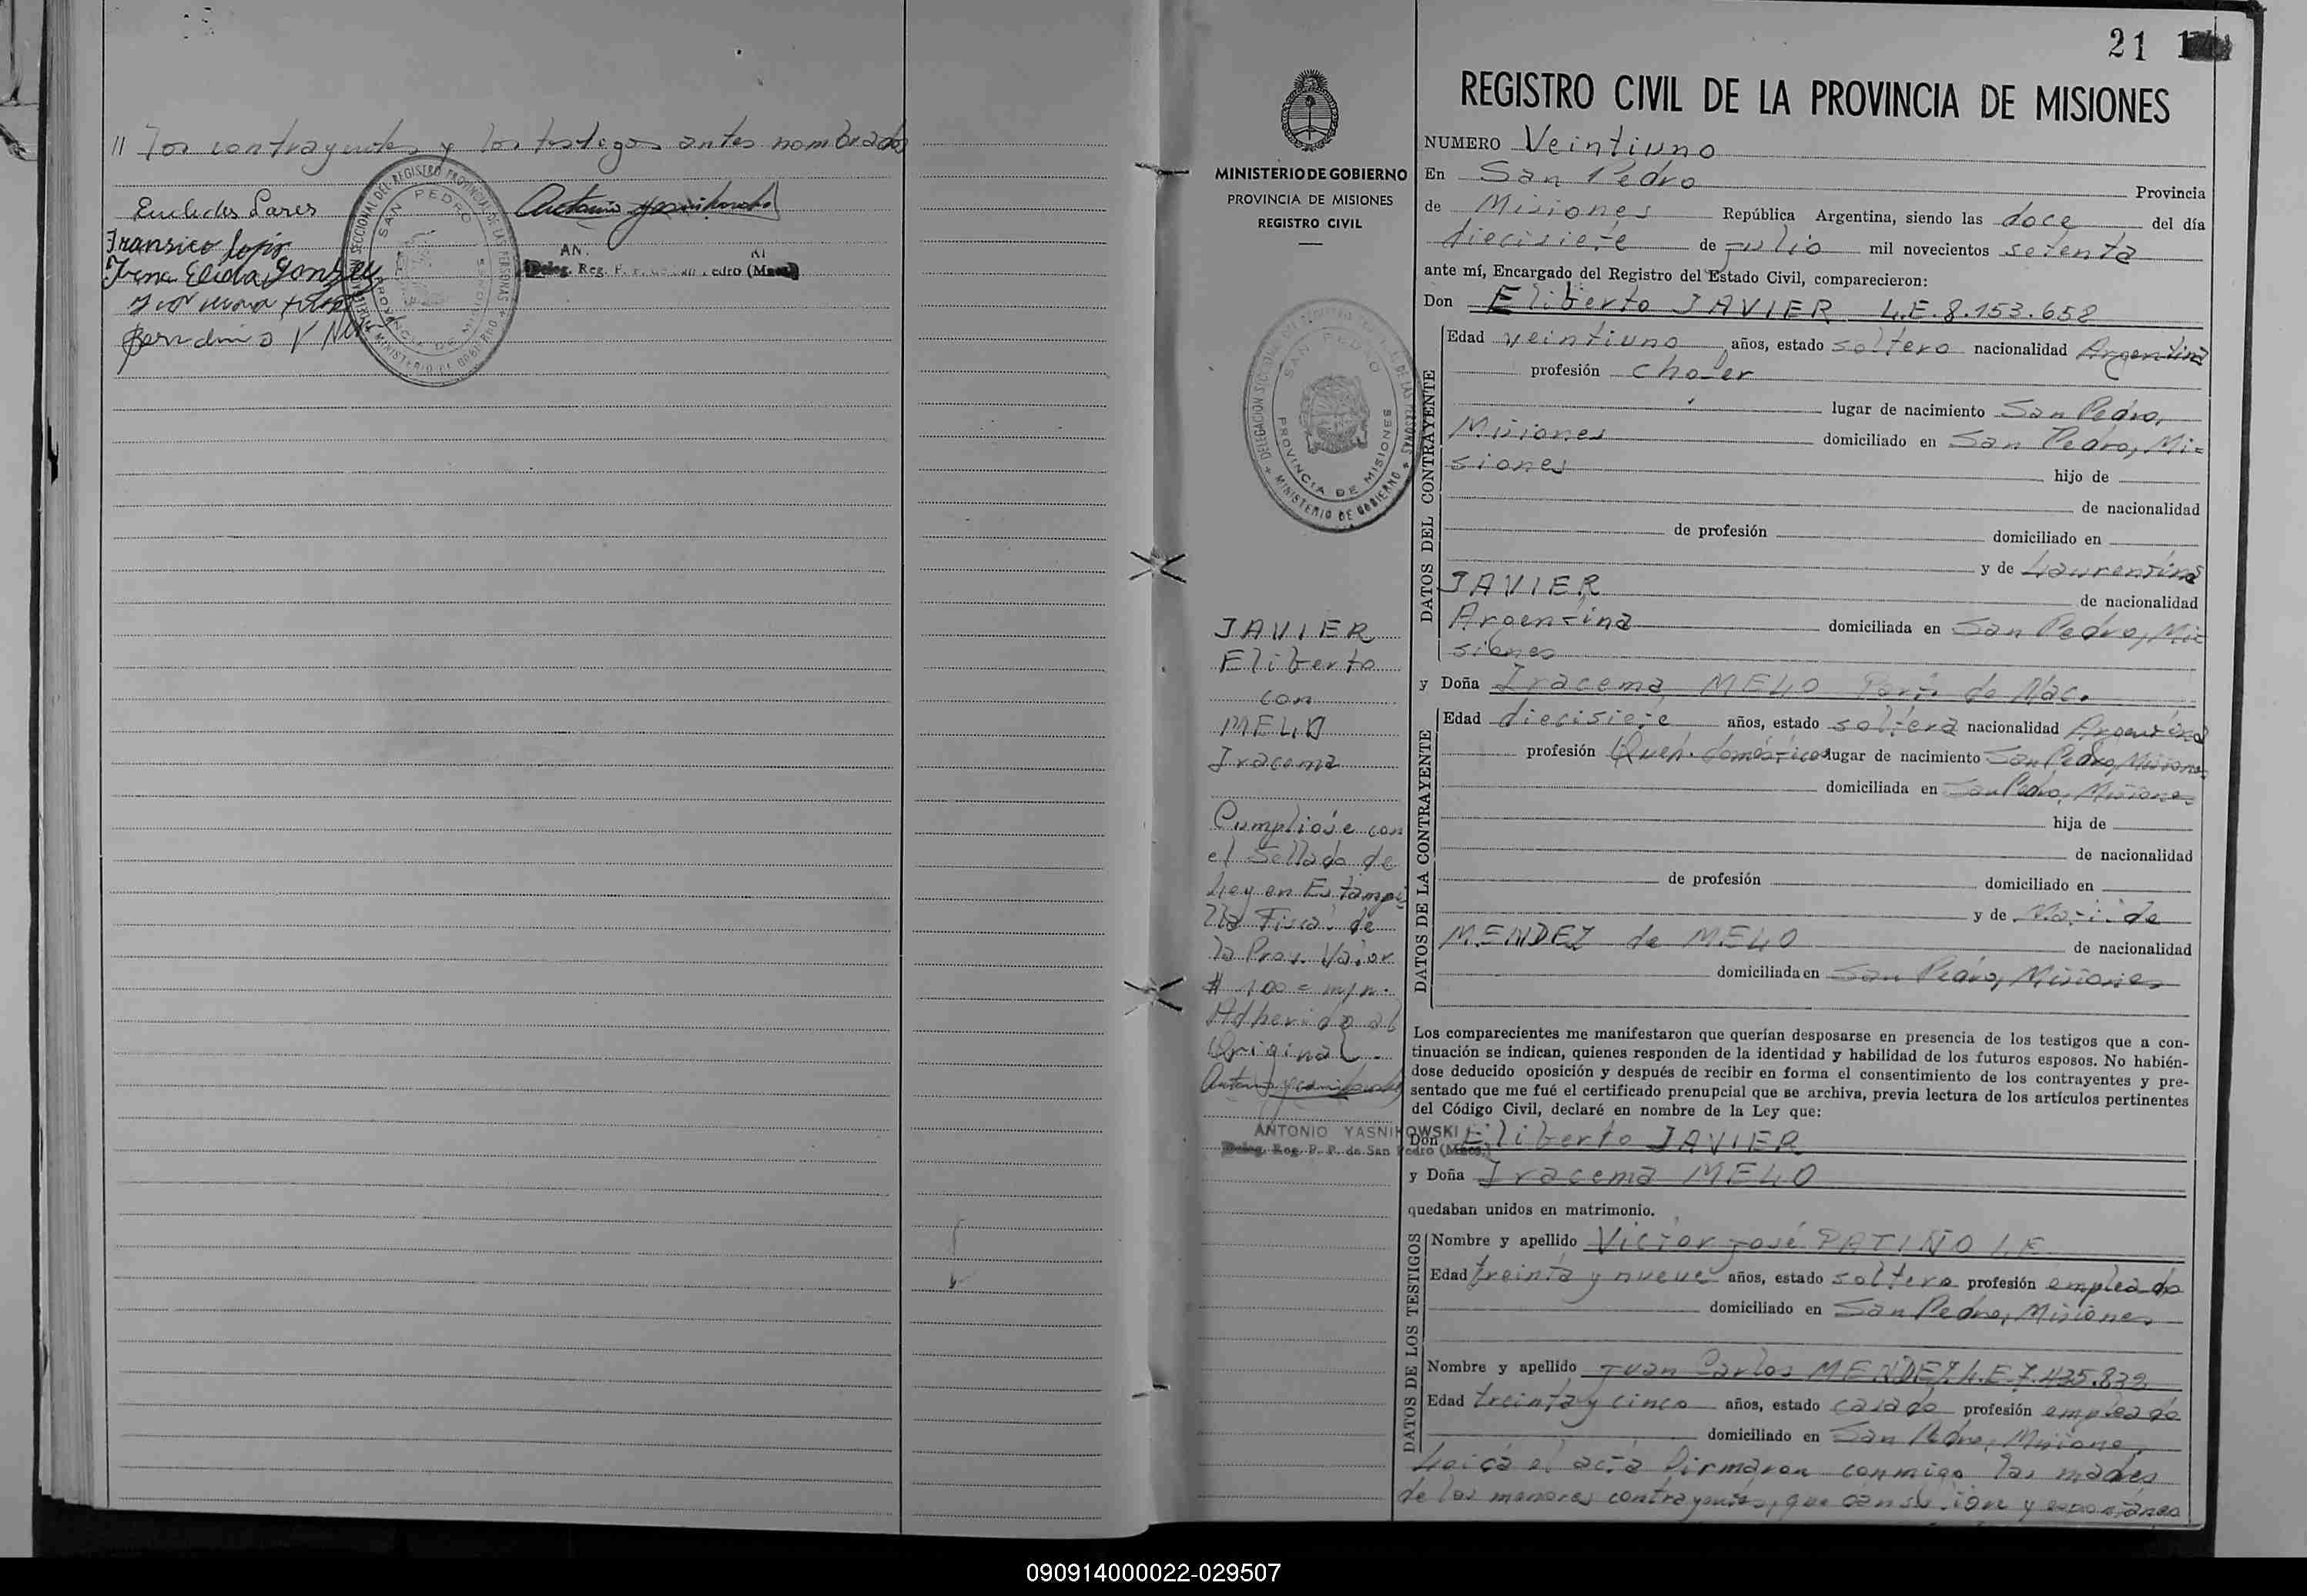 // los contrayentes y los testigos antes nombrados
Euclides Lares
DELEGACION SECCIONAL DEL REGISTRO PROVINCIAL DE LAS PERSONAS
SAN PEDRO
PROVINCIA DE MISIONES
MINISTERIO DE GOBIERNO
Deleg. Reg. P. P. de San Pedro (Mnes.)
21
REGISTRO CIVIL DE LA PROVINCIA DE MISIONES
MINISTERIO DE GOBIERNO
PROVINCIA DE MISIONES
REGISTRO CIVIL
NUMERO Veintiuno
En San Pedro Provincia
de Misiones República Argentina, siendo las doce del día
diecisiete de julio mil novecientos setenta
ante mí, Encargado del Registro del Estado Civil, comparecieron:
Don Eliberto JAVIER L.E. 8.153.658
DATOS DEL CONTRAYENTE
Edad veintiuno años, estado soltero nacionalidad Argentina
profesión chofer
lugar de nacimiento San Pedro,
Misiones domiciliado en San Pedro, Mi=
siones hijo de
de nacionalidad
de profesión domiciliado en
y de Laurentina
JAVIER de nacionalidad
Argentina domiciliada en San Pedro, Mi=
siones
y Doña Iracema MELO Part. de Nac.
DATOS DE LA CONTRAYENTE
Edad diecisiete años, estado soltera nacionalidad Argentina
profesión Queh. domésticos lugar de nacimiento San Pedro, Misiones
domiciliada en San Pedro, Misiones
hija de
de nacionalidad
de profesión domiciliado en
y de Matilde
MENDEZ de MELO de nacionalidad
domiciliada en San Pedro, Misiones
JAVIER
Eliberto
con
MELO
Iracema
Cumplióse con
el Sellado de
Ley en Estampi
lla Fiscal de
la Prov. Valor
$ 100 = m/n.
Adherido al
Original.
ANTONIO YASNIKOWSKI
Deleg. Reg. P. P. de San Pedro (Mnes.)
Los comparecientes me manifestaron que querían desposarse en presencia de los testigos que a con-
tinuación se indican, quienes responden de la identidad y habilidad de los futuros esposos. No habién-
dose deducido oposición y después de recibir en forma el consentimiento de los contrayentes y pre-
sentado que me fué el certificado prenupcial que se archiva, previa lectura de los artículos pertinentes
del Código Civil, declaré en nombre de la Ley que:
Don Eliberto JAVIER
y Doña Iracema MELO
quedaban unidos en matrimonio.
DATOS DE LOS TESTIGOS
Nombre y apellido Victor José PATIÑO L.E.
Edad treinta y nueve años, estado soltero profesión empleado
domiciliado en San Pedro, Misiones
Nombre y apellido Juan Carlos MENDEZ L.E. 7.435.832
Edad treinta y cinco años, estado casado profesión empleado
domiciliado en San Pedro, Misiones,
Leída el acta firmaron conmigo las madres
de los menores contrayentes, que dan su libre y espontáneo
090914000022-029507